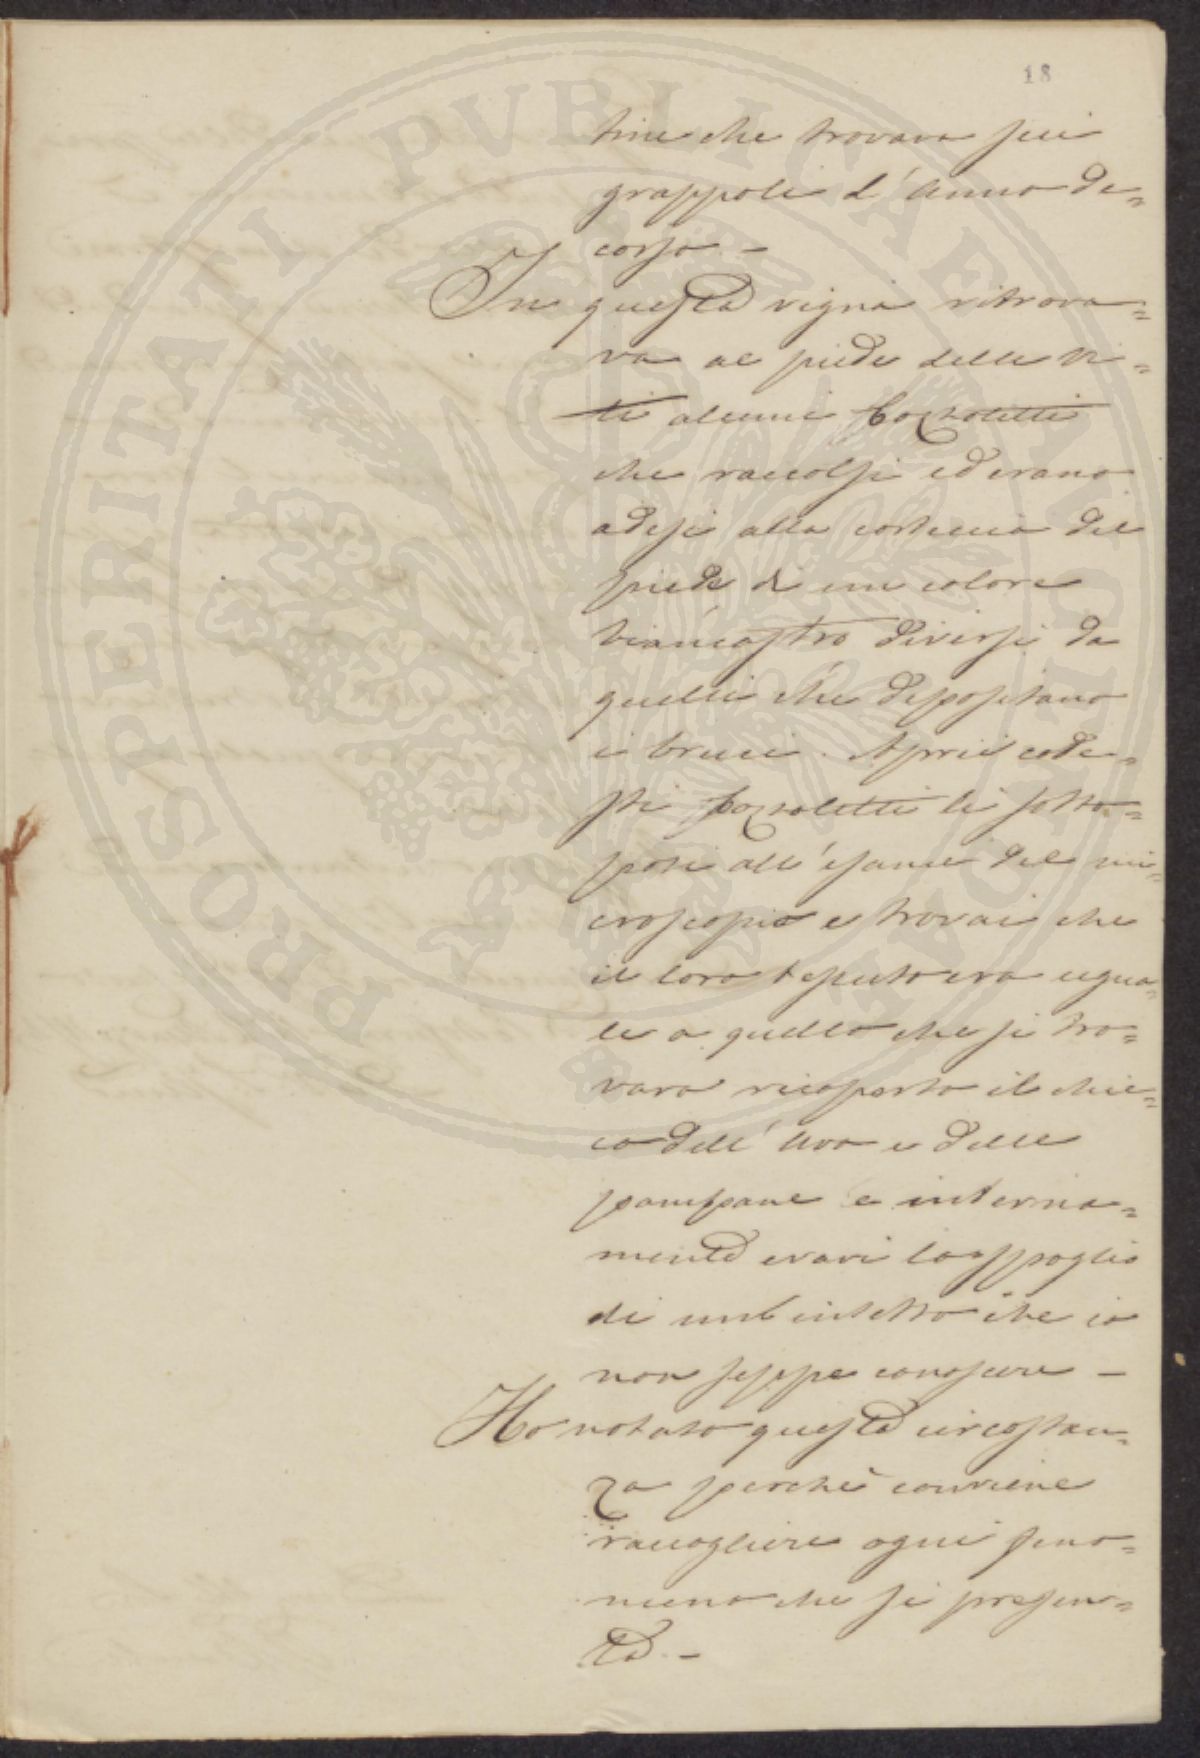 18
tine che trovava sui
grappoli l'Anno de=
corso. -
In questa vigna ritrova=
va al piede delle vi=
ti alcuni bozzoletti
che raccolsi ed erano
adesi alla corteccia del
piede di un colore
biancastro diversi da
quelli che depositano
i bruci. Aprii code=
sti bozzoletti li sotto=
posi all'esame del mi=
croscopio e trovai che
il loro tessuto era ugua=
le a quello che si tro=
vava ricoperto il chic=
co dell'Uva e delle
pampane e interna=
mente eravi la spoglia
di un insetto che io
non seppe conoscere -
Ho notato questa circostan=
za perchè conviene
raccogliere ogni feno=
meno che si presen=
ta. -
PROSPERITATI PVBLICAE AVGENDAE